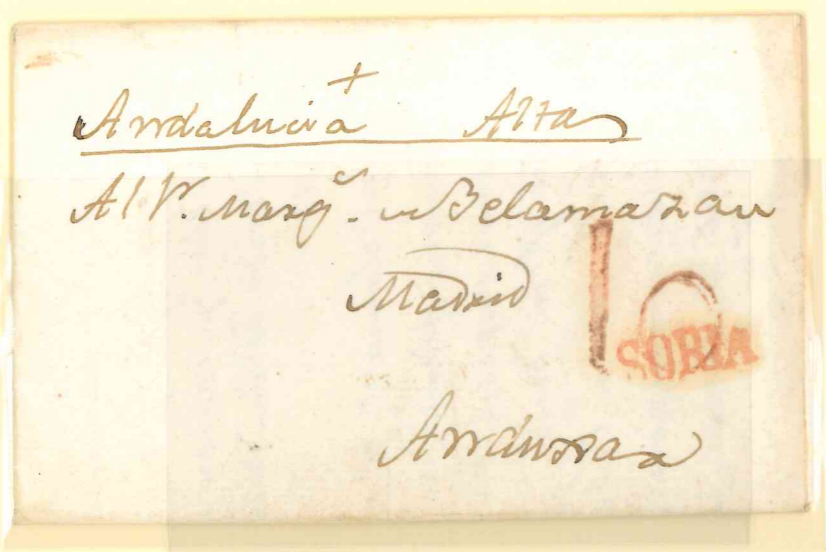 +
Andalucia Alta
Al Sr. Marqs. de Belamazan
Madrid
10
SORIA
Andusar